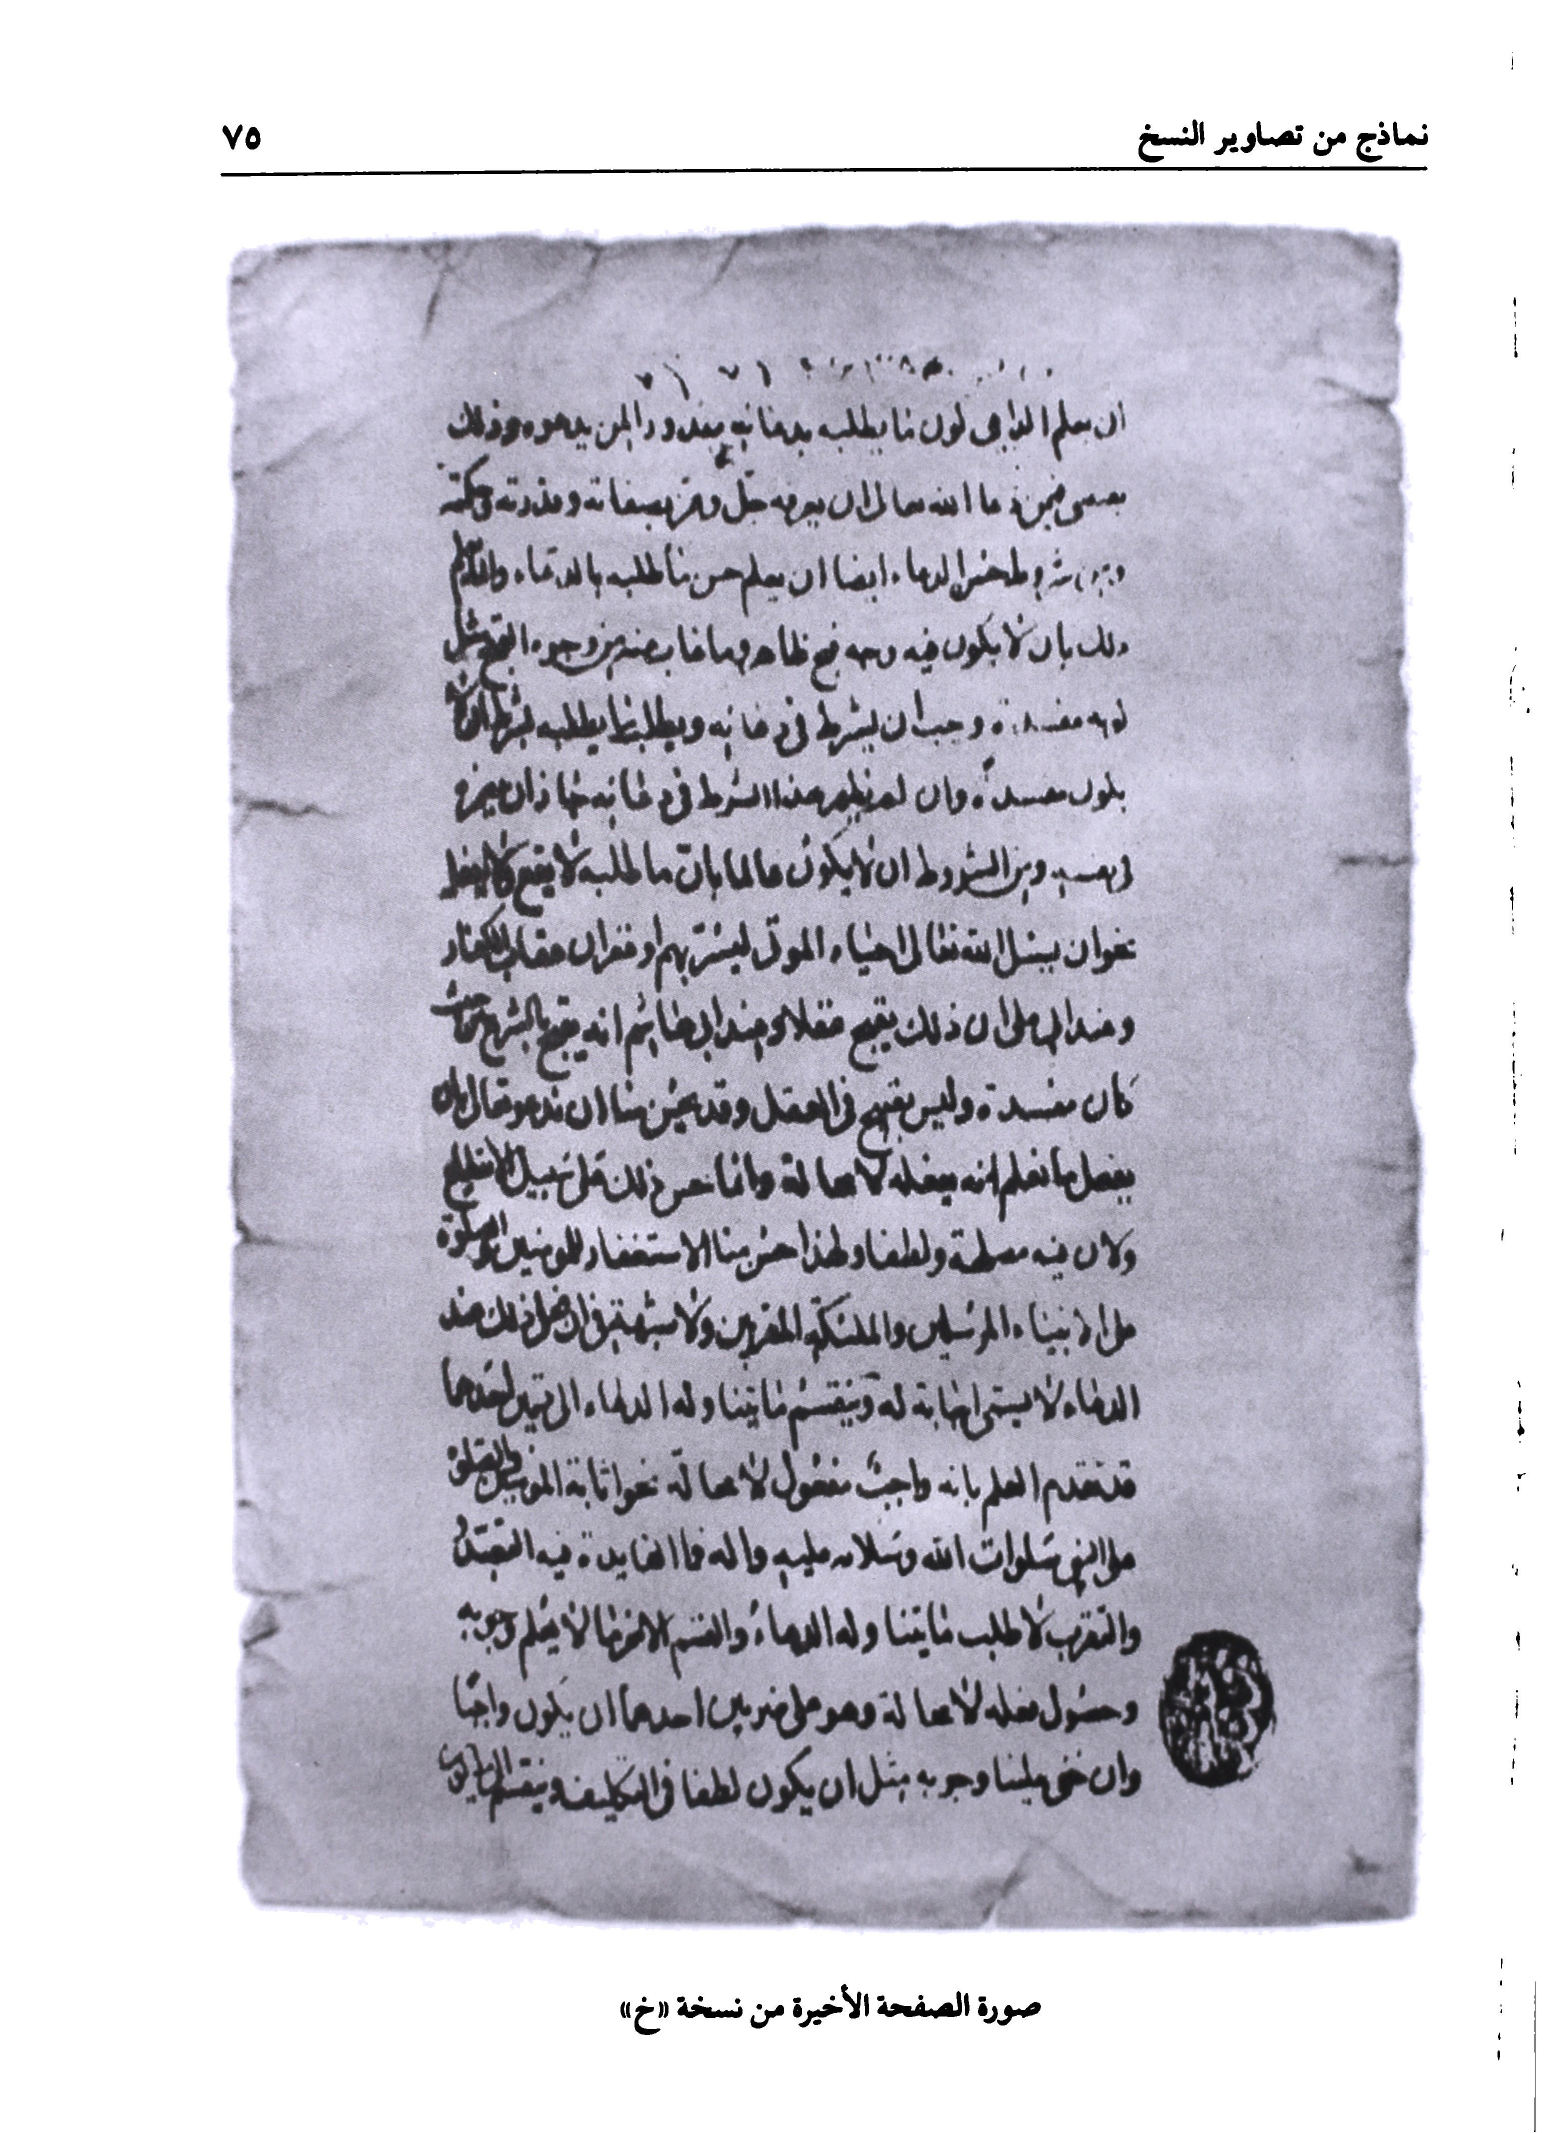 نماذج من تصاوير النسخ
٧٥
ان يعلم الداعي كون ما يطلبه بدعائه مقدورا لمن يدعوه وذلك
فمن دعا الله تعالى ان يعرفه جل وعز بصفاته وقدرته وحكمته
شروط حسن الدعاء ايضا ان يعلم حسن ما طلبه بالدعاء وانما يعلم
ذلك بان لا يكون فيه وجه قبح ظاهر وما غاب عنه من وجوه القبح مثل
كونه مفسدة وجب ان يشرط في دعائه ويطلب ما يطلبه بشرط ان لا
يكون مفسدة وان لم يظهر هذا الشرط في دعائه جاز ان يضمره
في نفسه ومن الشروط ان لا يكون عالما بان ما طلبه لا يقع ولا يفعل
نحو ان يسئل الله تعالى احياء الموتى ليسر بهم او غفران عقاب الكفار
وعند ابي علي ان ذلك يقبح عقلا وعند ابي هاشم انه يقبح بالشرع من حيث
كان مفسدة وليس بقبيح في العقل وقد يحسن منا ان ندعوه تعالى بان
يفعل ما نعلم انه يفعله لا محالة وانما حسن ذلك على سبيل الانقطاع
ولان فيه مصلحة ولطفا ولهذا حسن منا الاستغفار للمومنين والصلوة
على الانبياء المرسلين والملئكة المقربين ولا شبهة في ان فعل ذلك عند
الدعاء لا يسمى اجابة له وينقسم ما يتناوله الدعاء الى قسمين احدهما
قد تقدم العلم بانه واجب مفعول لا محالة نحو اثابة المومنين والصلوة
على النبي صلوات الله وسلامه عليه واله فما الفايدة فيه التعبد
والتقرب لا طلب ما يتناوله الدعاء والقسم الاخر ما لا يعلم وجوبه
وحصول فعله لا محالة وهو على ضربين احدهما ان يكون واجبا
وان خفي علينا وجوبه مثل ان يكون لطفا في التكليف وينقسم
صورة الصفحة الأخيرة من نسخة «خ»